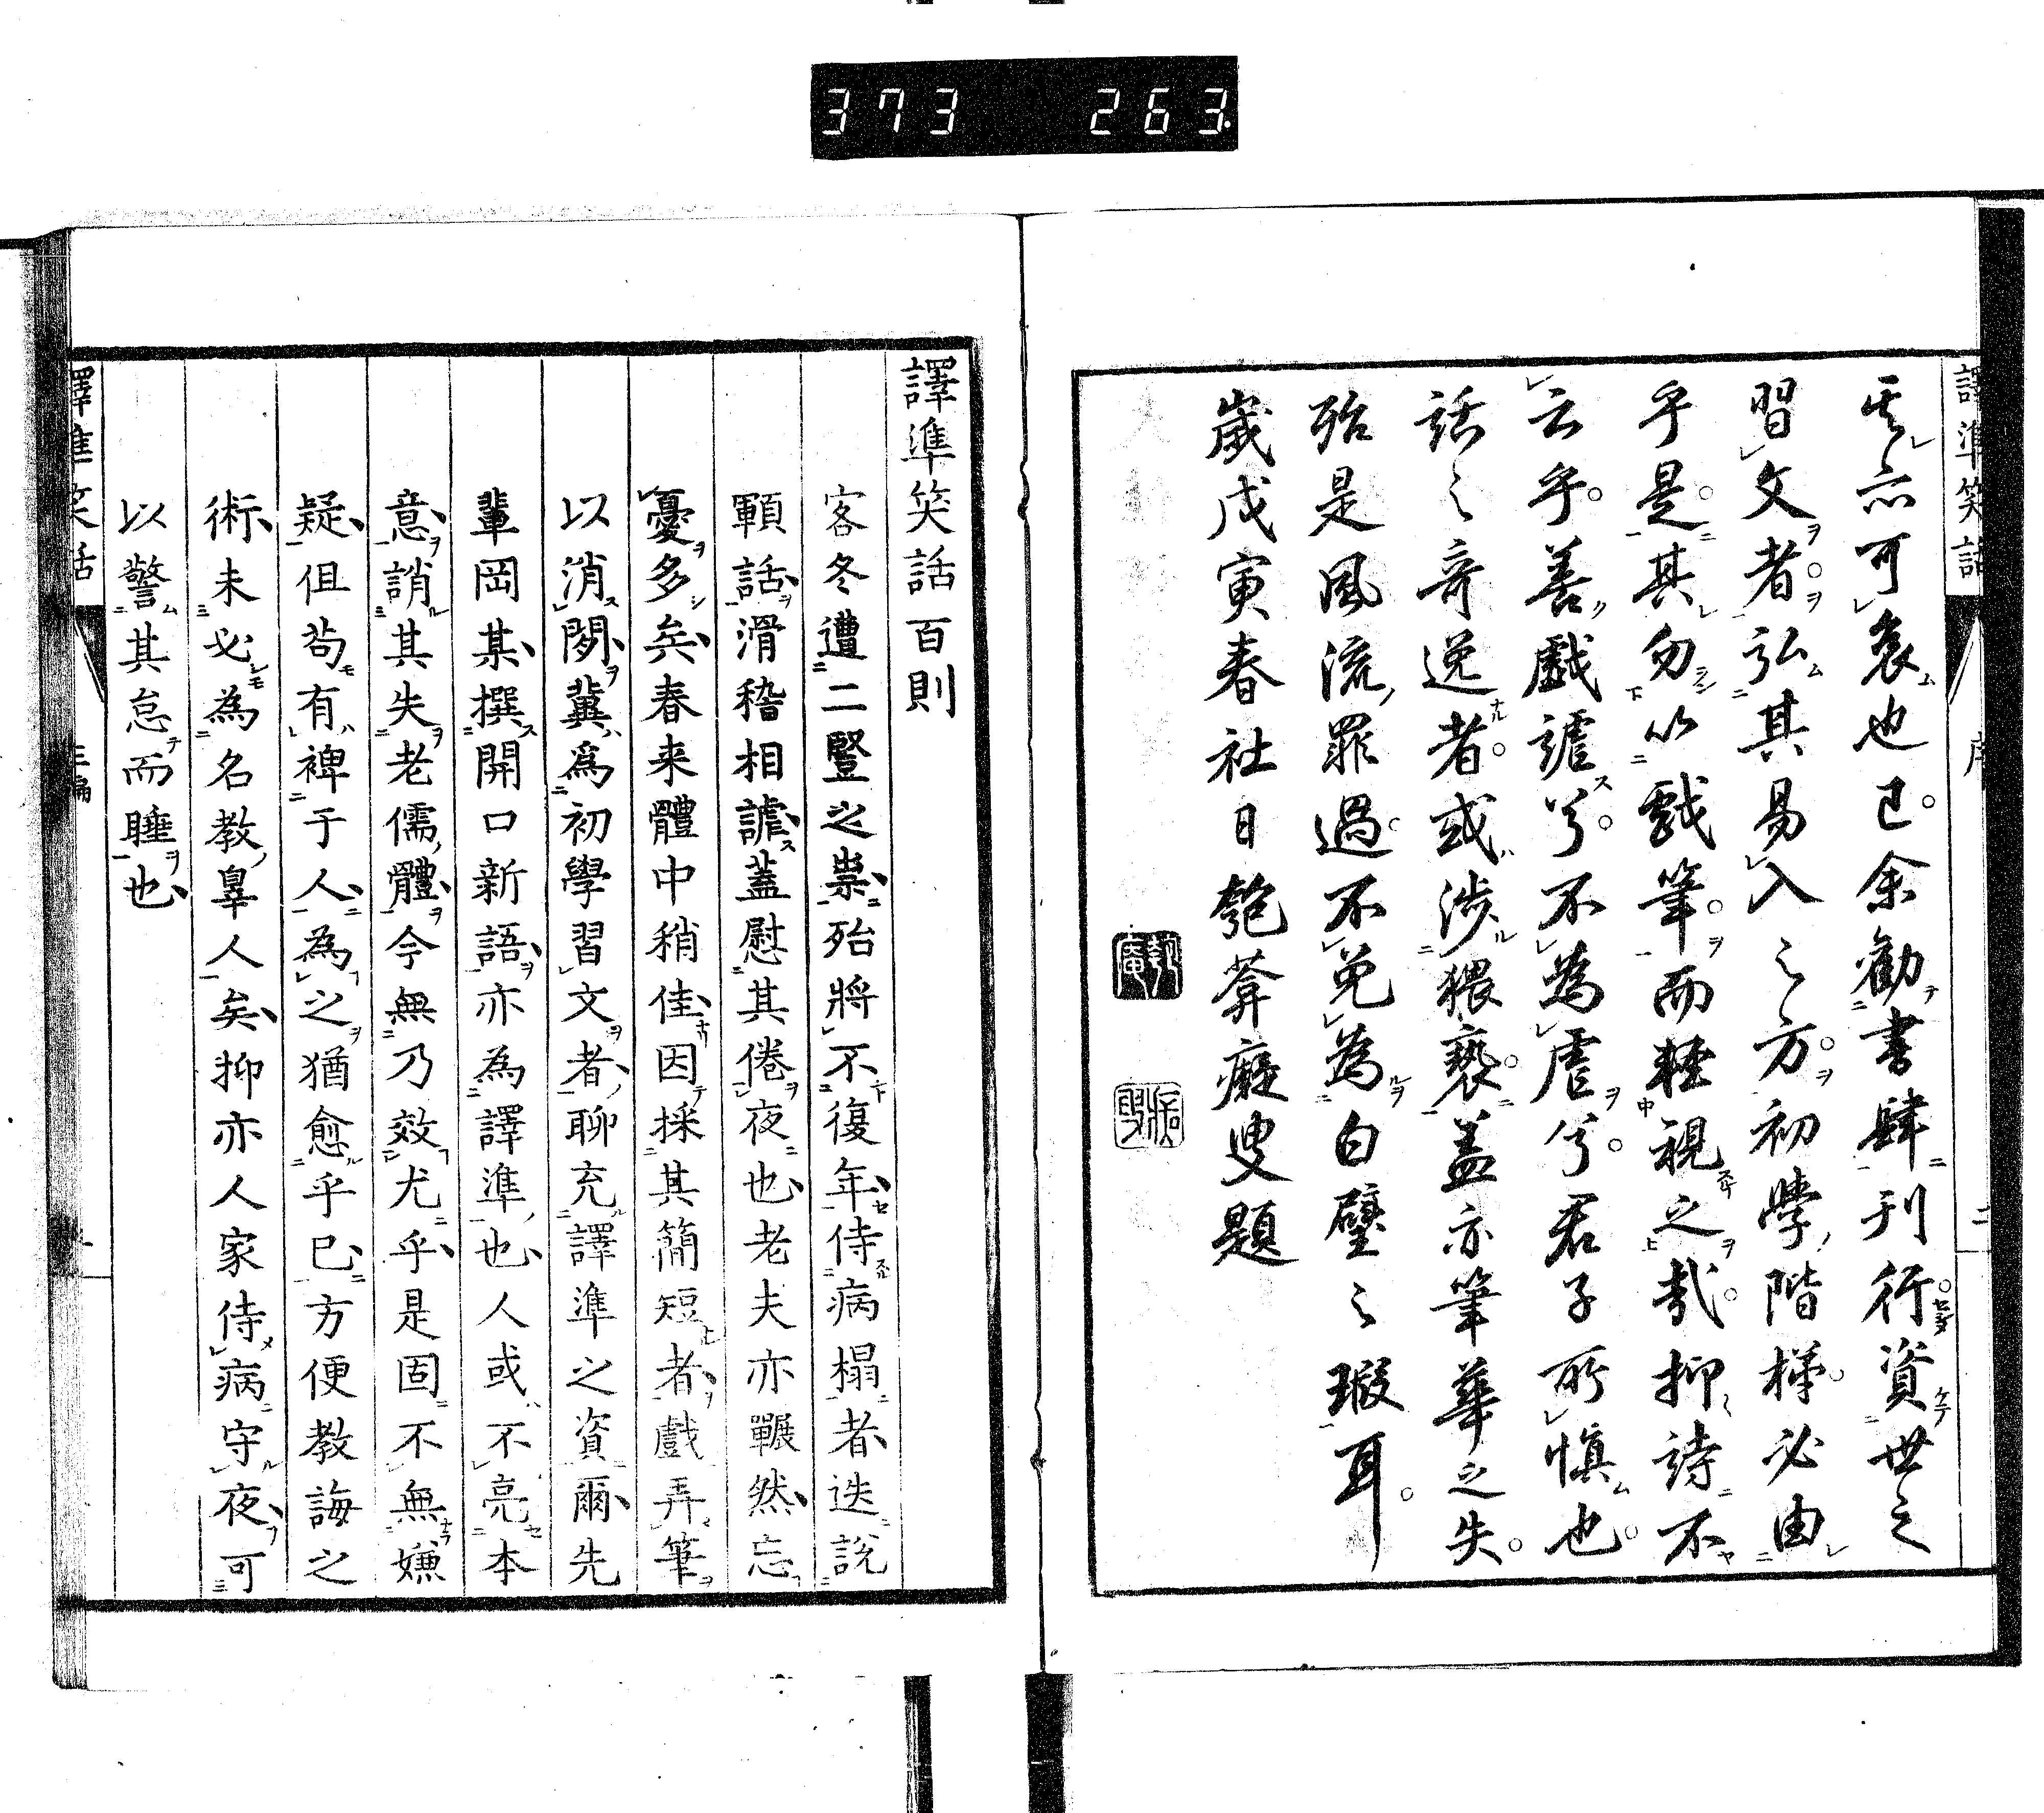 373 263
譯準笑話 序 二
其亦可哀也已余勸書肆刊行資世之
習文者弘其易入之方初學階梯必由
乎是其勿以戲筆而輕視之哉抑詩不
云乎善戲謔兮不為虐兮君子所慎也
話之奇逸者或涉猥褻蓋亦筆華之失
殆是風流罪過不免為白璧之瑕耳
歲戊寅春社日匏菴癡叟題
匏菴
癡叟
譯準笑話百則
客冬遭二豎之祟殆將不復年侍病榻者迭說
顐話滑稽相謔蓋慰其倦夜也老夫亦囅然忘
憂多矣春来體中稍佳因採其簡短者戲弄筆
以消閑冀爲初學習文者聊充譯準之資爾先
輩岡某撰開口新語亦為譯準也人或不亮本
意誚其失老儒體今無乃效尤乎是固不無嫌
疑但苟有裨于人為之猶愈乎已方便教誨之
術未必為名教辠人矣抑亦人家侍病守夜可
以警其怠而睡也
譯準笑話